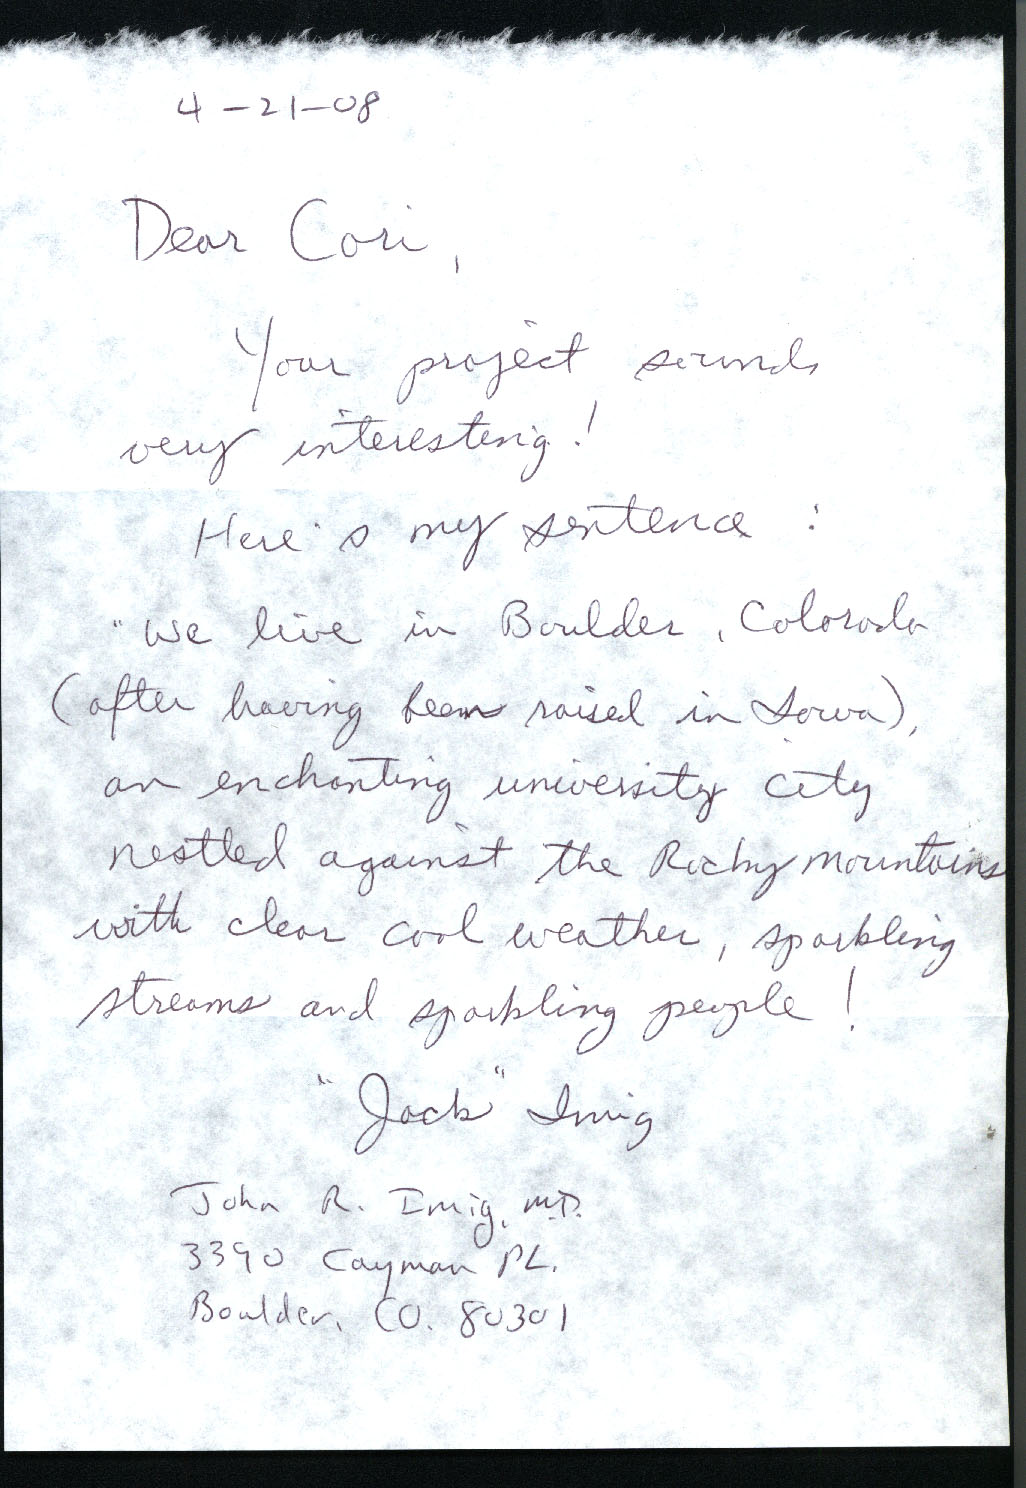 4-21-08
Dear Cori,
Your project sounds
very interesting!
Here's my sentence :
"We live in Boulder, Colorado
(after having been raised in Iowa),
an enchanting university city
nestled against the Rocky Mountains
with clear cool weather, sparkling
streams and sparkling people!
"Jack" Imig
John R. Imig, M.D.
3390 Cayman PL.
Boulder, CO. 80301